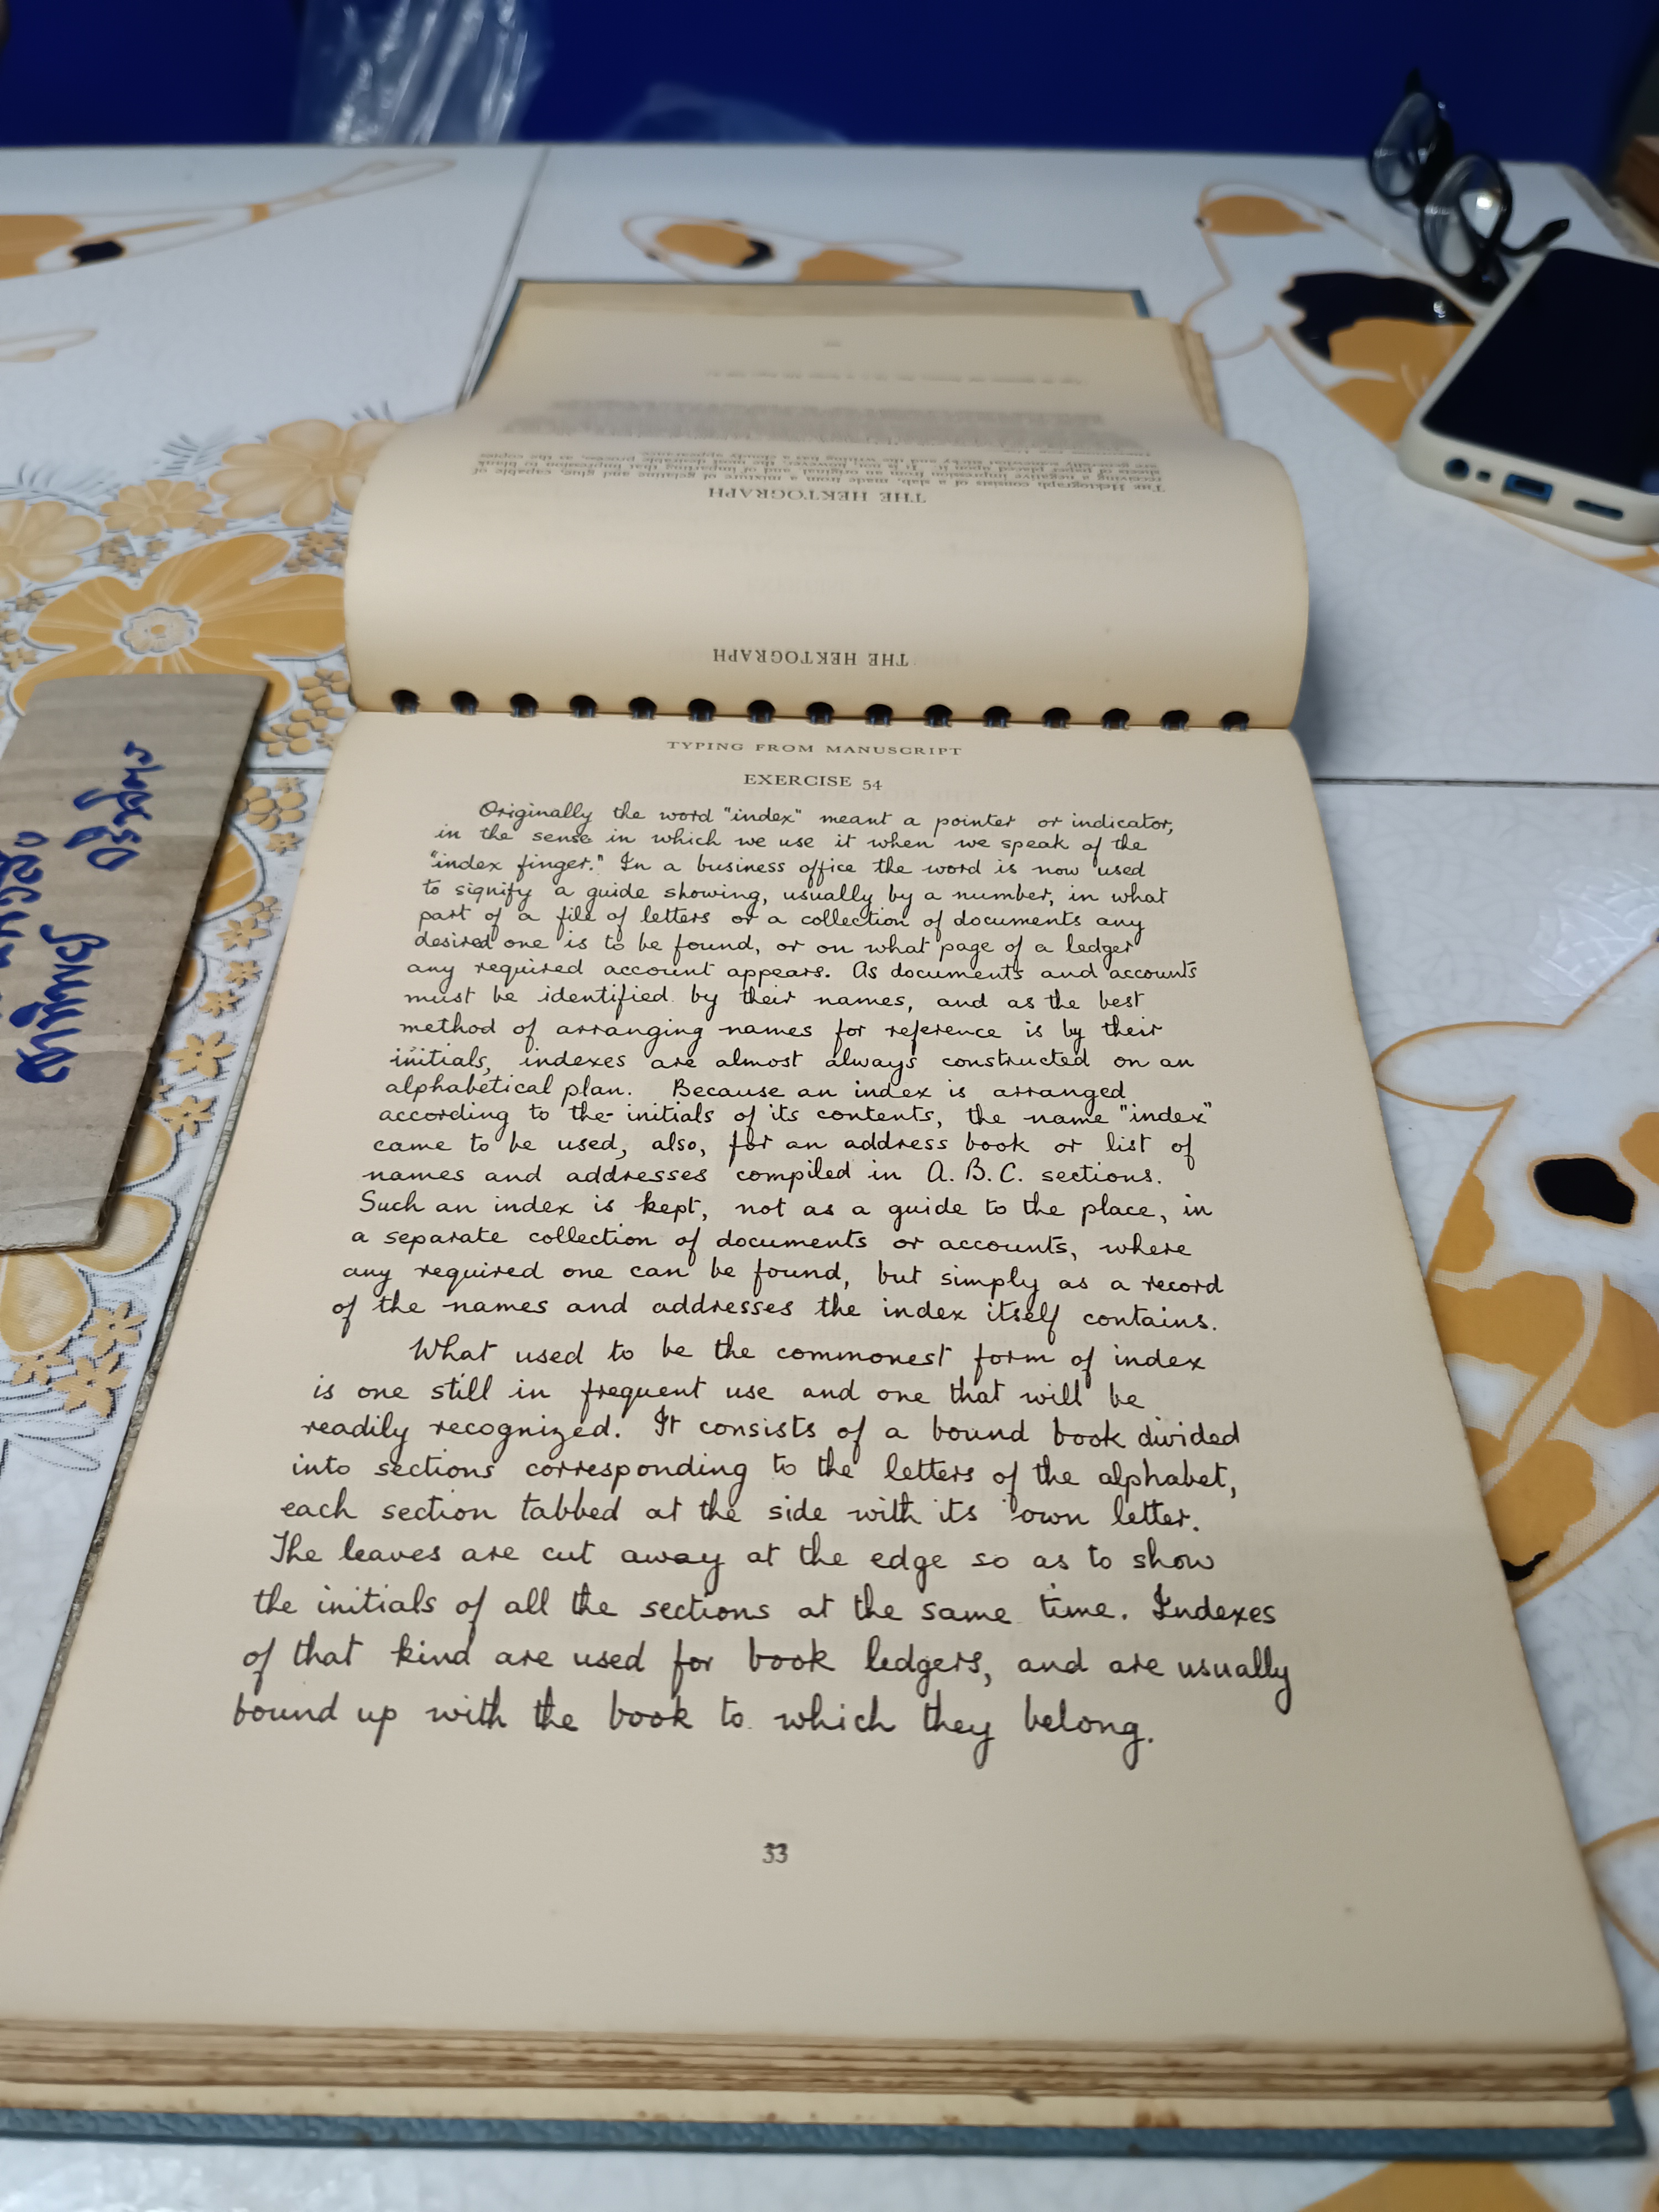 THE HEKTOGRAPH
THE HEKTOGRAPH
THE Hektograph consists of a slab, made from a mixture of gelatine and glue, capable of
receiving a negative impression from an original, and of imparting that impression to blank
sheets of paper placed upon it. It is not, however, the most desirable process, as the copies
are generally somewhat sticky and the writing has a cloudy appearance.
TYPING FROM MANUSCRIPT
EXERCISE 54
Originally the word "index" meant a pointer or indicator,
in the sense in which we use it when we speak of the
"index finger." In a business office the word is now used
to signify a guide showing, usually by a number, in what
part of a file of letters or a collection of documents any
desired one is to be found, or on what page of a ledger
any required account appears. As documents and accounts
must be identified by their names, and as the best
method of arranging names for reference is by their
initials, indexes are almost always constructed on an
alphabetical plan. Because an index is arranged
according to the initials of its contents, the name "index"
came to be used, also, for an address book or list of
names and addresses compiled in A. B. C. sections.
Such an index is kept, not as a guide to the place, in
a separate collection of documents or accounts, where
any required one can be found, but simply as a record
of the names and addresses the index itself contains.
What used to be the commonest form of index
is one still in frequent use and one that will be
readily recognized. It consists of a bound book divided
into sections corresponding to the letters of the alphabet,
each section tabbed at the side with its own letter.
The leaves are cut away at the edge so as to show
the initials of all the sections at the same time. Indexes
of that kind are used for book ledgers, and are usually
bound up with the book to which they belong.
33